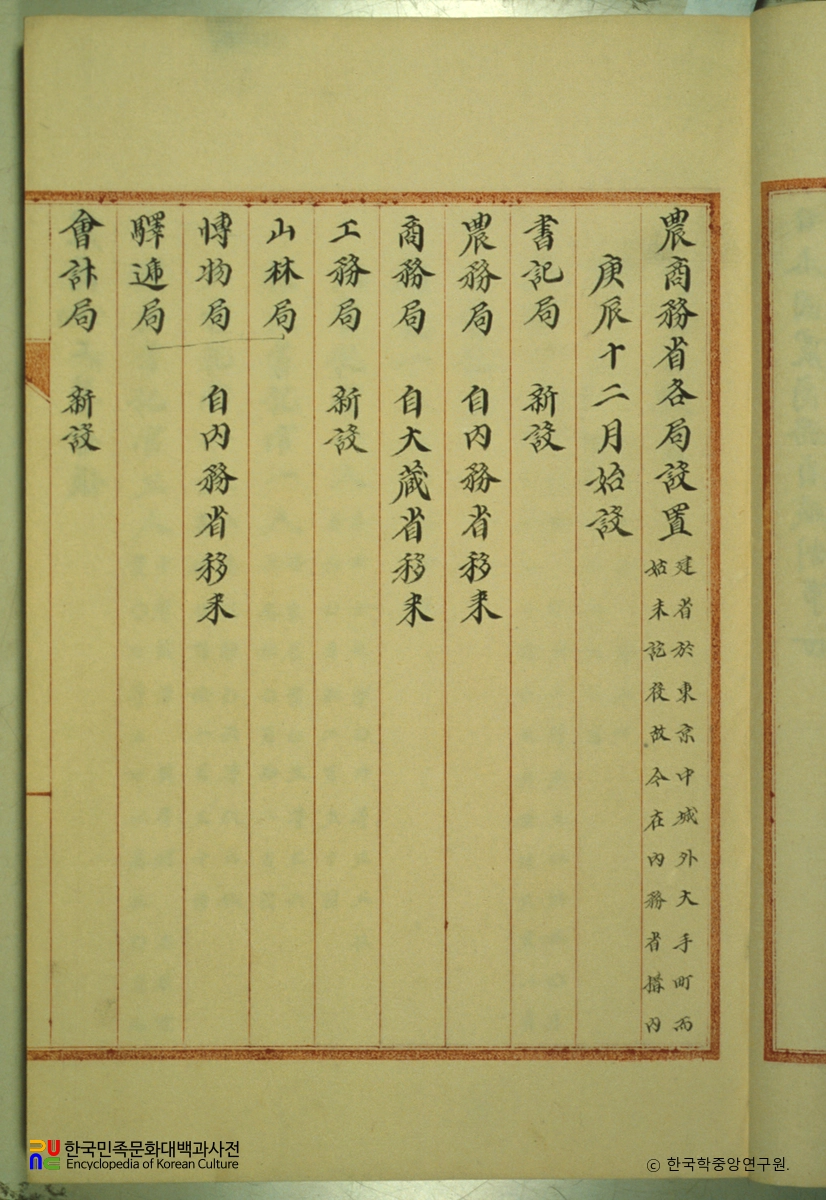 農商務省各局設置 建省於東京中城外大手町而
姑未訖役故今在內務省搆內
庚辰十二月始設
書記局 新設
農務局 自內務省移来
商務局 自大蔵省移来
工務局 新設
山林局
博物局 自內務省移来
驛遞局
會計局 新設
한국민족문화대백과사전
Encyclopedia of Korean Culture
ⓒ 한국학중앙연구원.